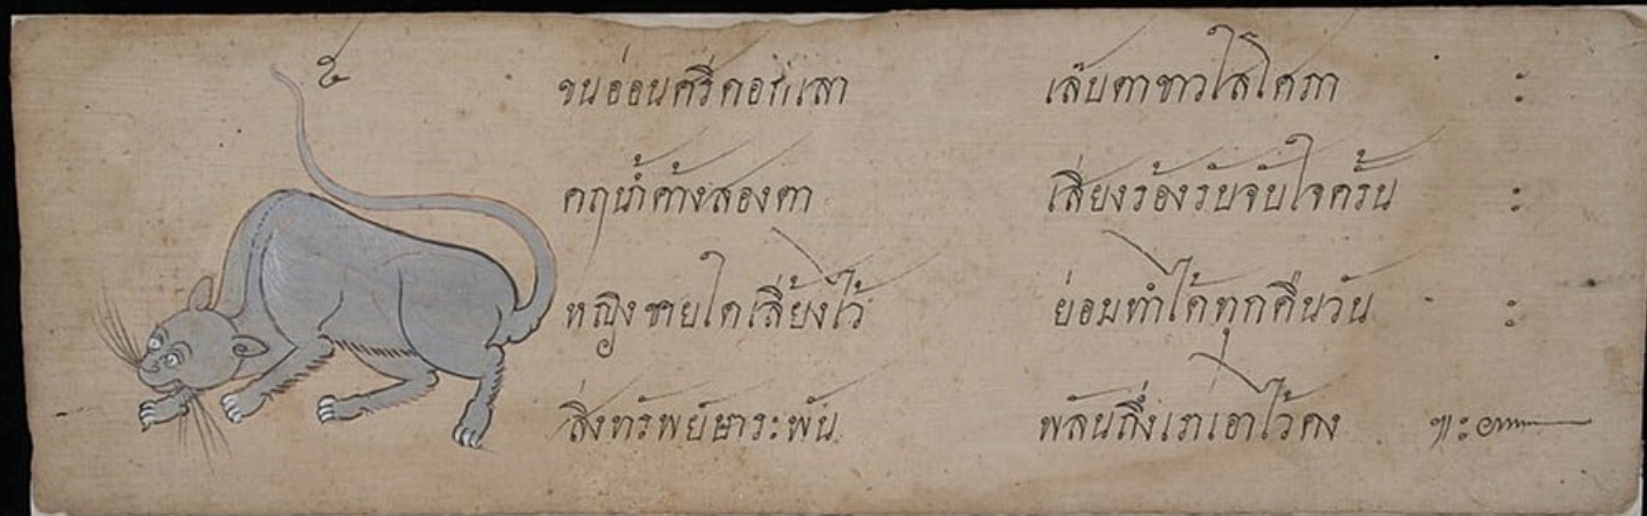 ขนอ่อนศรีดอกเลา เล็บตาขาวใสโสภา :
ดฤน้ำค้างสองตา เสียงร้องรับจับใจครัน :
หญิงชายใดเลี้ยงไว้ ย่อมทำได้ทุกคืนวัน :
สิ่งทรัพย์ษาระพัน พลันถึงเรเอาไว้คง ๚ะ๛